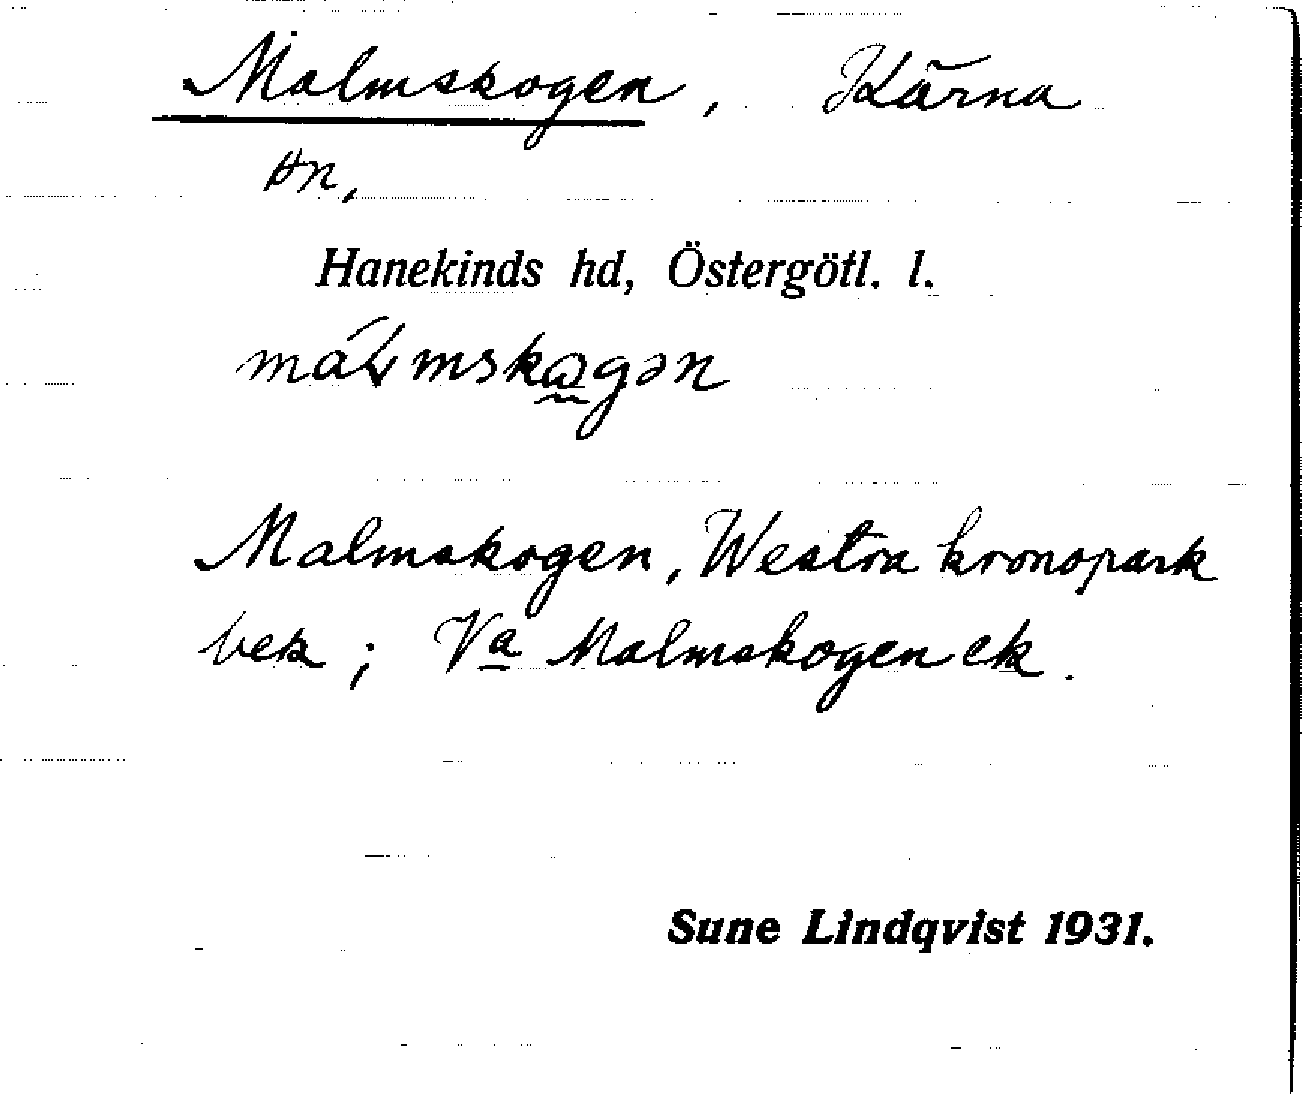 Malmskogen, Kärna
sn,
Hanekinds hd, Östergötl. l.
Malmskogen, Westra kronopark
bek; Va Malmskogen ek.
Sune Lindqvist 1931.